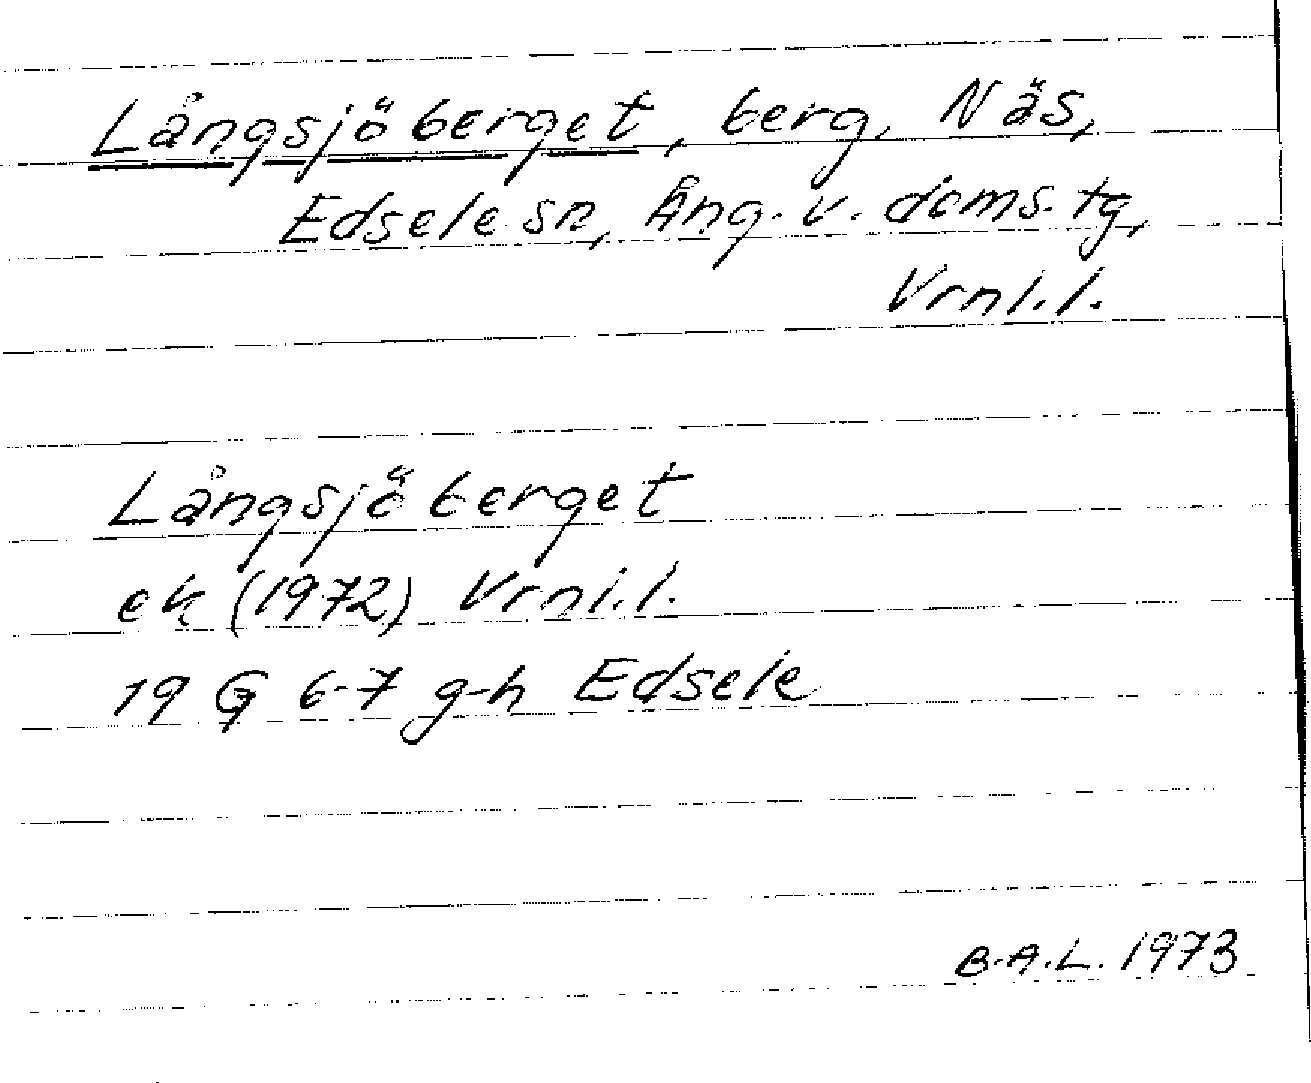 Långsjöberget, berg, Näs,
Edsele sn, Ång. v. doms. tg,
Vrnl.l.
Långsjöberget
ek (1972) Vrnl.l.
19 G 6-7 g-h Edsele
B.A.L. 1973